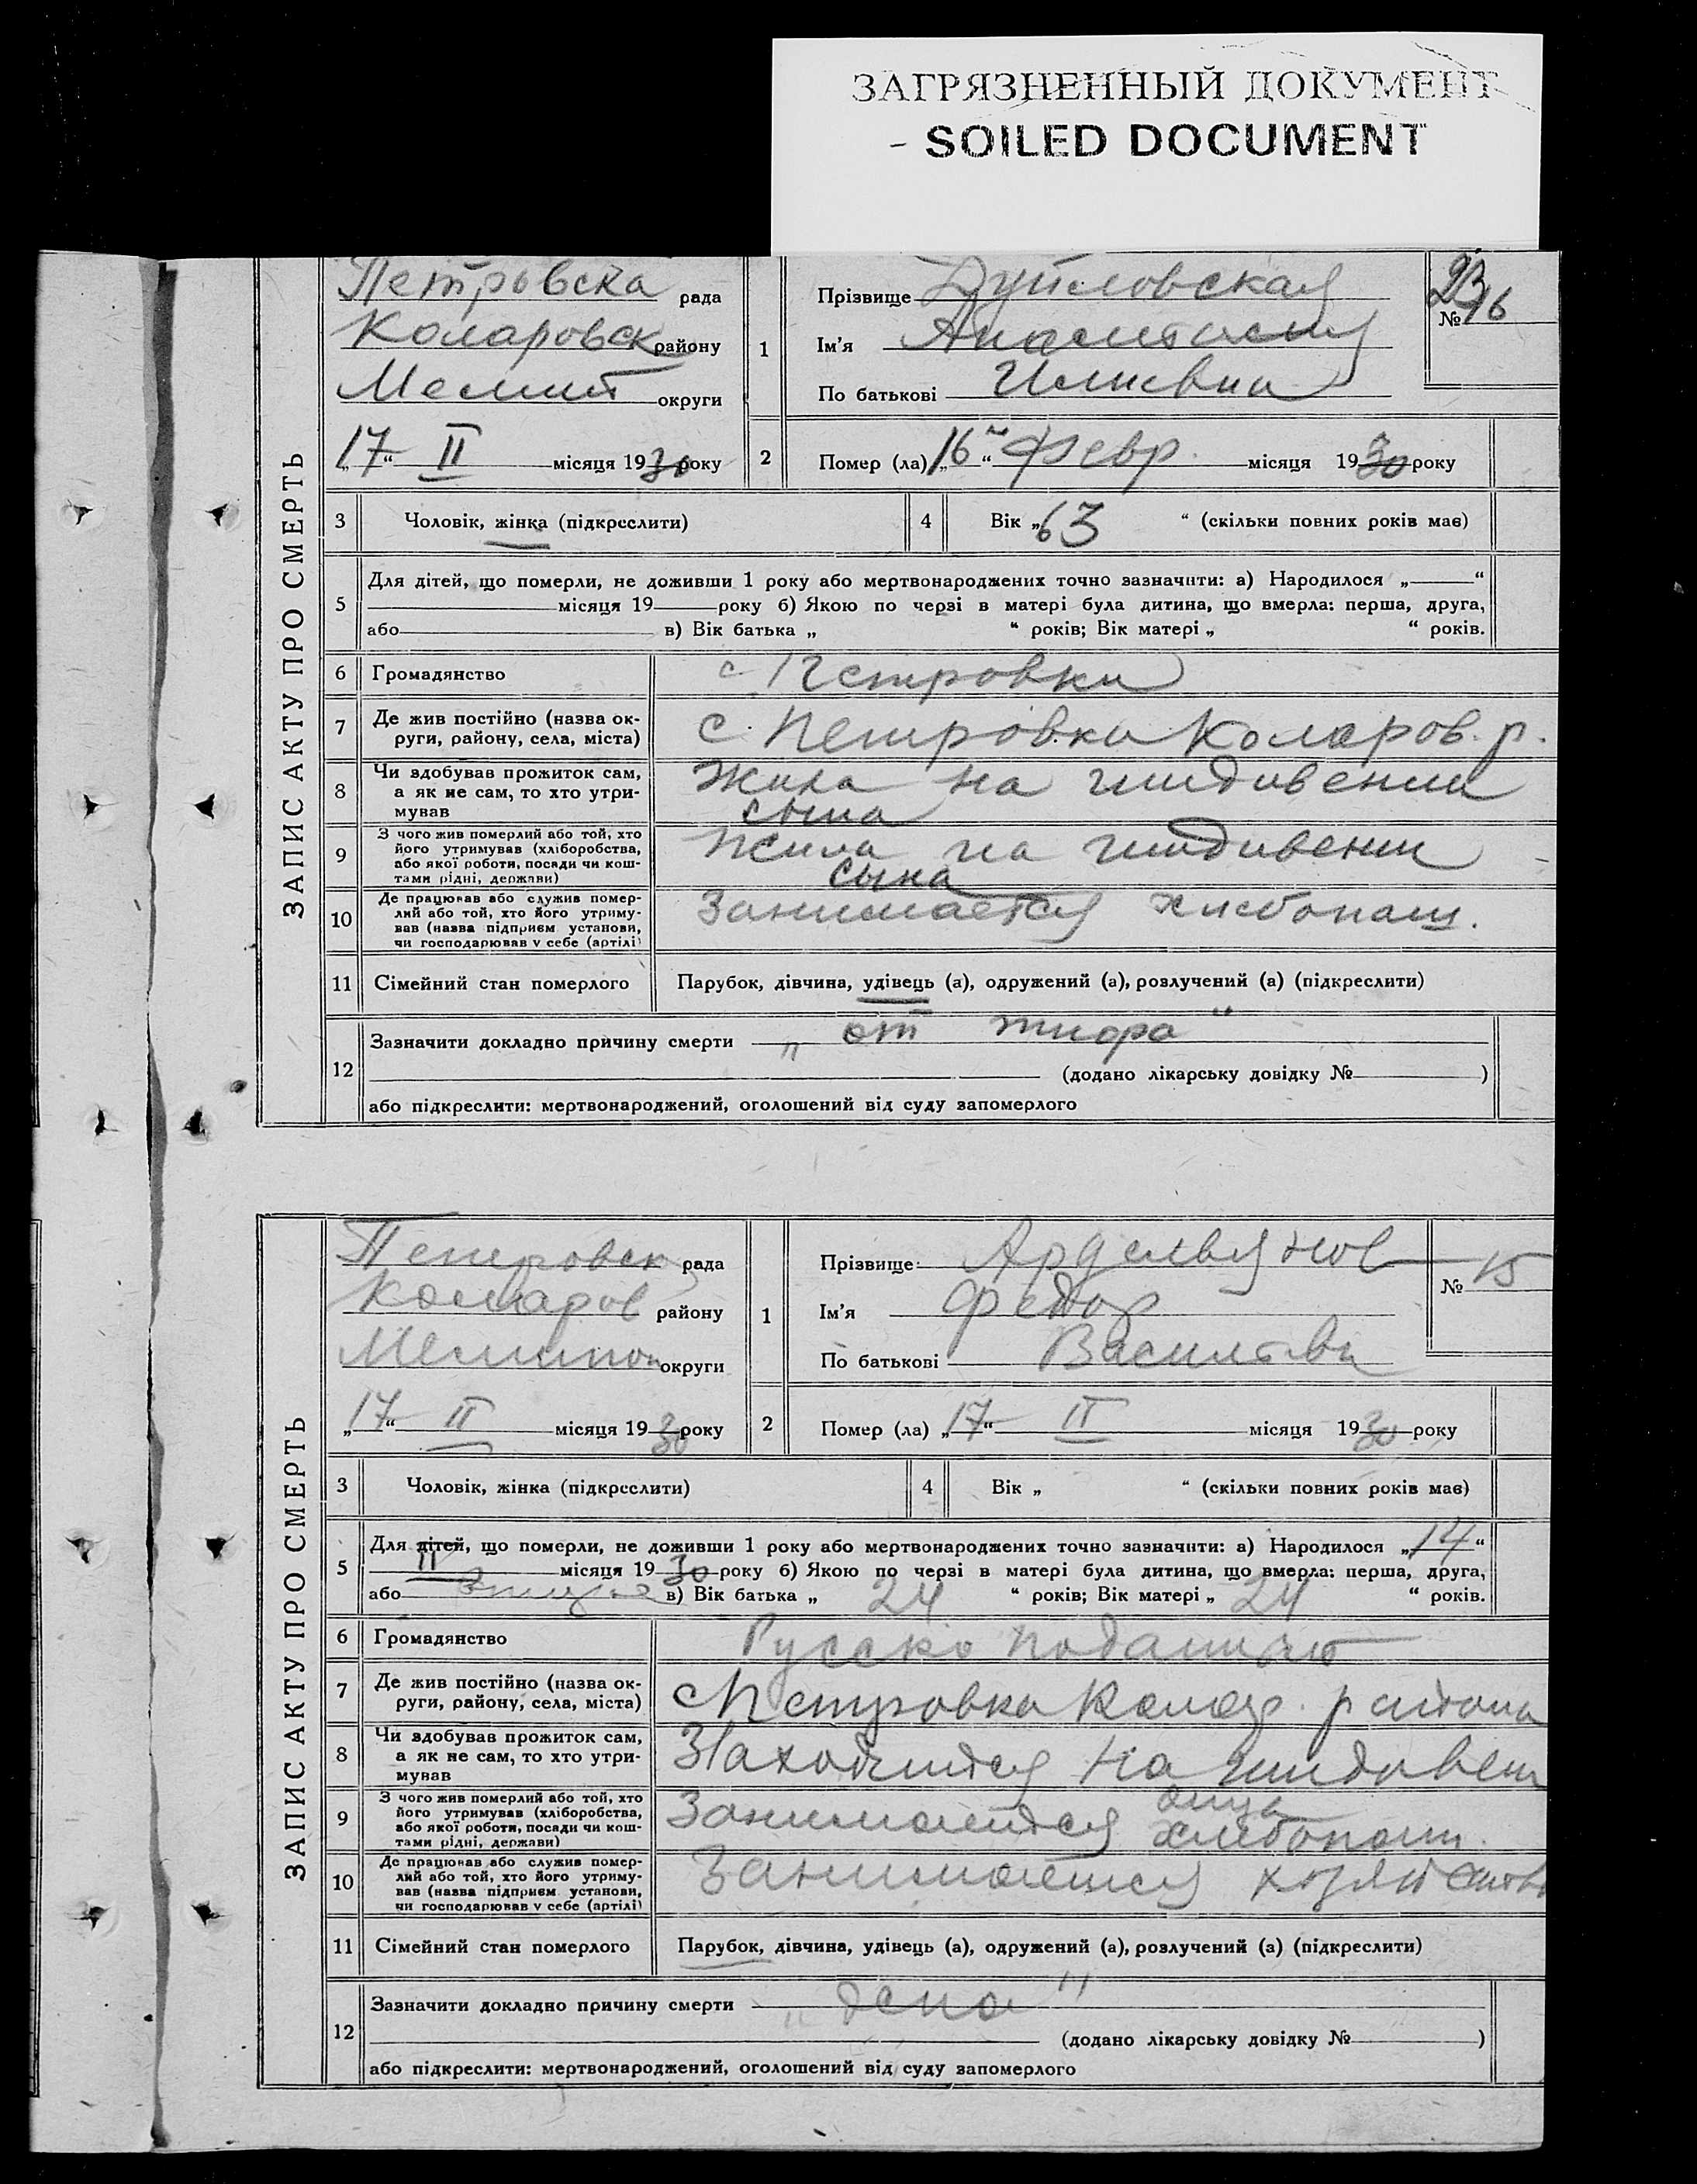 ЗАГРЯЗНЕННЫЙ ДОКУМЕНТ
- SOILED DOCUMENT
ЗАПИС АКТУ ПРО СМЕРТЬ
Петровска рада
Коларовск району
Мелит округи
„17“ II місяця 1930 року
1
Прізвище
Ім'я Анастасия
По батькові Илиевна
№ 16
2
Помер (ла) „16“ Февр. місяця 1930 року
3 Чоловік, жінка (підкреслити)
4 Вік „63“ (скільки повних років має)
5
Для дітей, що померли, не доживши 1 року або мертвонароджених точно зазначити: а) Народилося „ “
місяця 19 року б) Якою по черзі в матері була дитина, що вмерла: перша, друга,
або в) Вік батька „ “ років; Вік матері „ “ років.
6 Громадянство с Петровки
7 Де жив постійно (назва округи, району, села, міста)
с. Петровка Коларов. р.
8 Чи здобував прожиток сам,
а як не сам, то хто утримував
Жила на иждивении
сына
9 З чого жив померлий або той, хто
його утримував (хліборобства,
або якої роботи, посади чи коштами рідні, держави)
Жила на иждивении
сына
10 Де працював або служив померлий або той, хто його утримував (назва підприєм установи,
чи господарював у себе (артілі)
Занимается хлебопаш.
11 Сімейний стан померлого Парубок, дівчина, удівець (а), одружений (а), розлучений (а) (підкреслити)
12
Зазначити докладно причину смерти „от
(додано лікарську довідку № )
або підкреслити: мертвонароджений, оголошений від суду запомерлого
ЗАПИС АКТУ ПРО СМЕРТЬ
Петровск рада
Коларов району
Мелитоп округи
„17“ II місяця 1930 року
1
Прізвище
Ім'я Федор
По батькові
№ 15
2
Помер (ла) „17“ II місяця 1930 року
3 Чоловік, жінка (підкреслити)
4 Вік „ “ (скільки повних років має)
5
Для дітей, що померли, не доживши 1 року або мертвонароджених точно зазначити: а) Народилося „14“
II місяця 1930 року б) Якою по черзі в матері була дитина, що вмерла: перша, друга,
або в) Вік батька „24“ років; Вік матері „24“ років.
6 Громадянство Русско
7 Де жив постійно (назва округи, району, села, міста)
с Петровка Колар. района
8 Чи здобував прожиток сам,
а як не сам, то хто утримував
Находится на
отца
9 З чого жив померлий або той, хто
його утримував (хліборобства,
або якої роботи, посади чи коштами рідні, держави)
Занимается хлебопаш.
10 Де працював або служив померлий або той, хто його утримував (назва підприєм установи,
чи господарював у себе (артілі)
Занимается
11 Сімейний стан померлого Парубок, дівчина, удівець (а), одружений (а), розлучений (а) (підкреслити)
12
Зазначити докладно причину смерти
(додано лікарську довідку № )
або підкреслити: мертвонароджений, оголошений від суду запомерлого